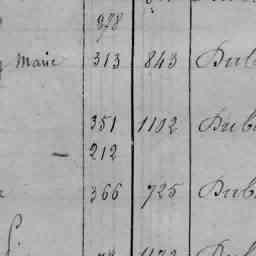 378
Marie 313 843 Dub
351 1102 Dub
— 212
366 725 Dub